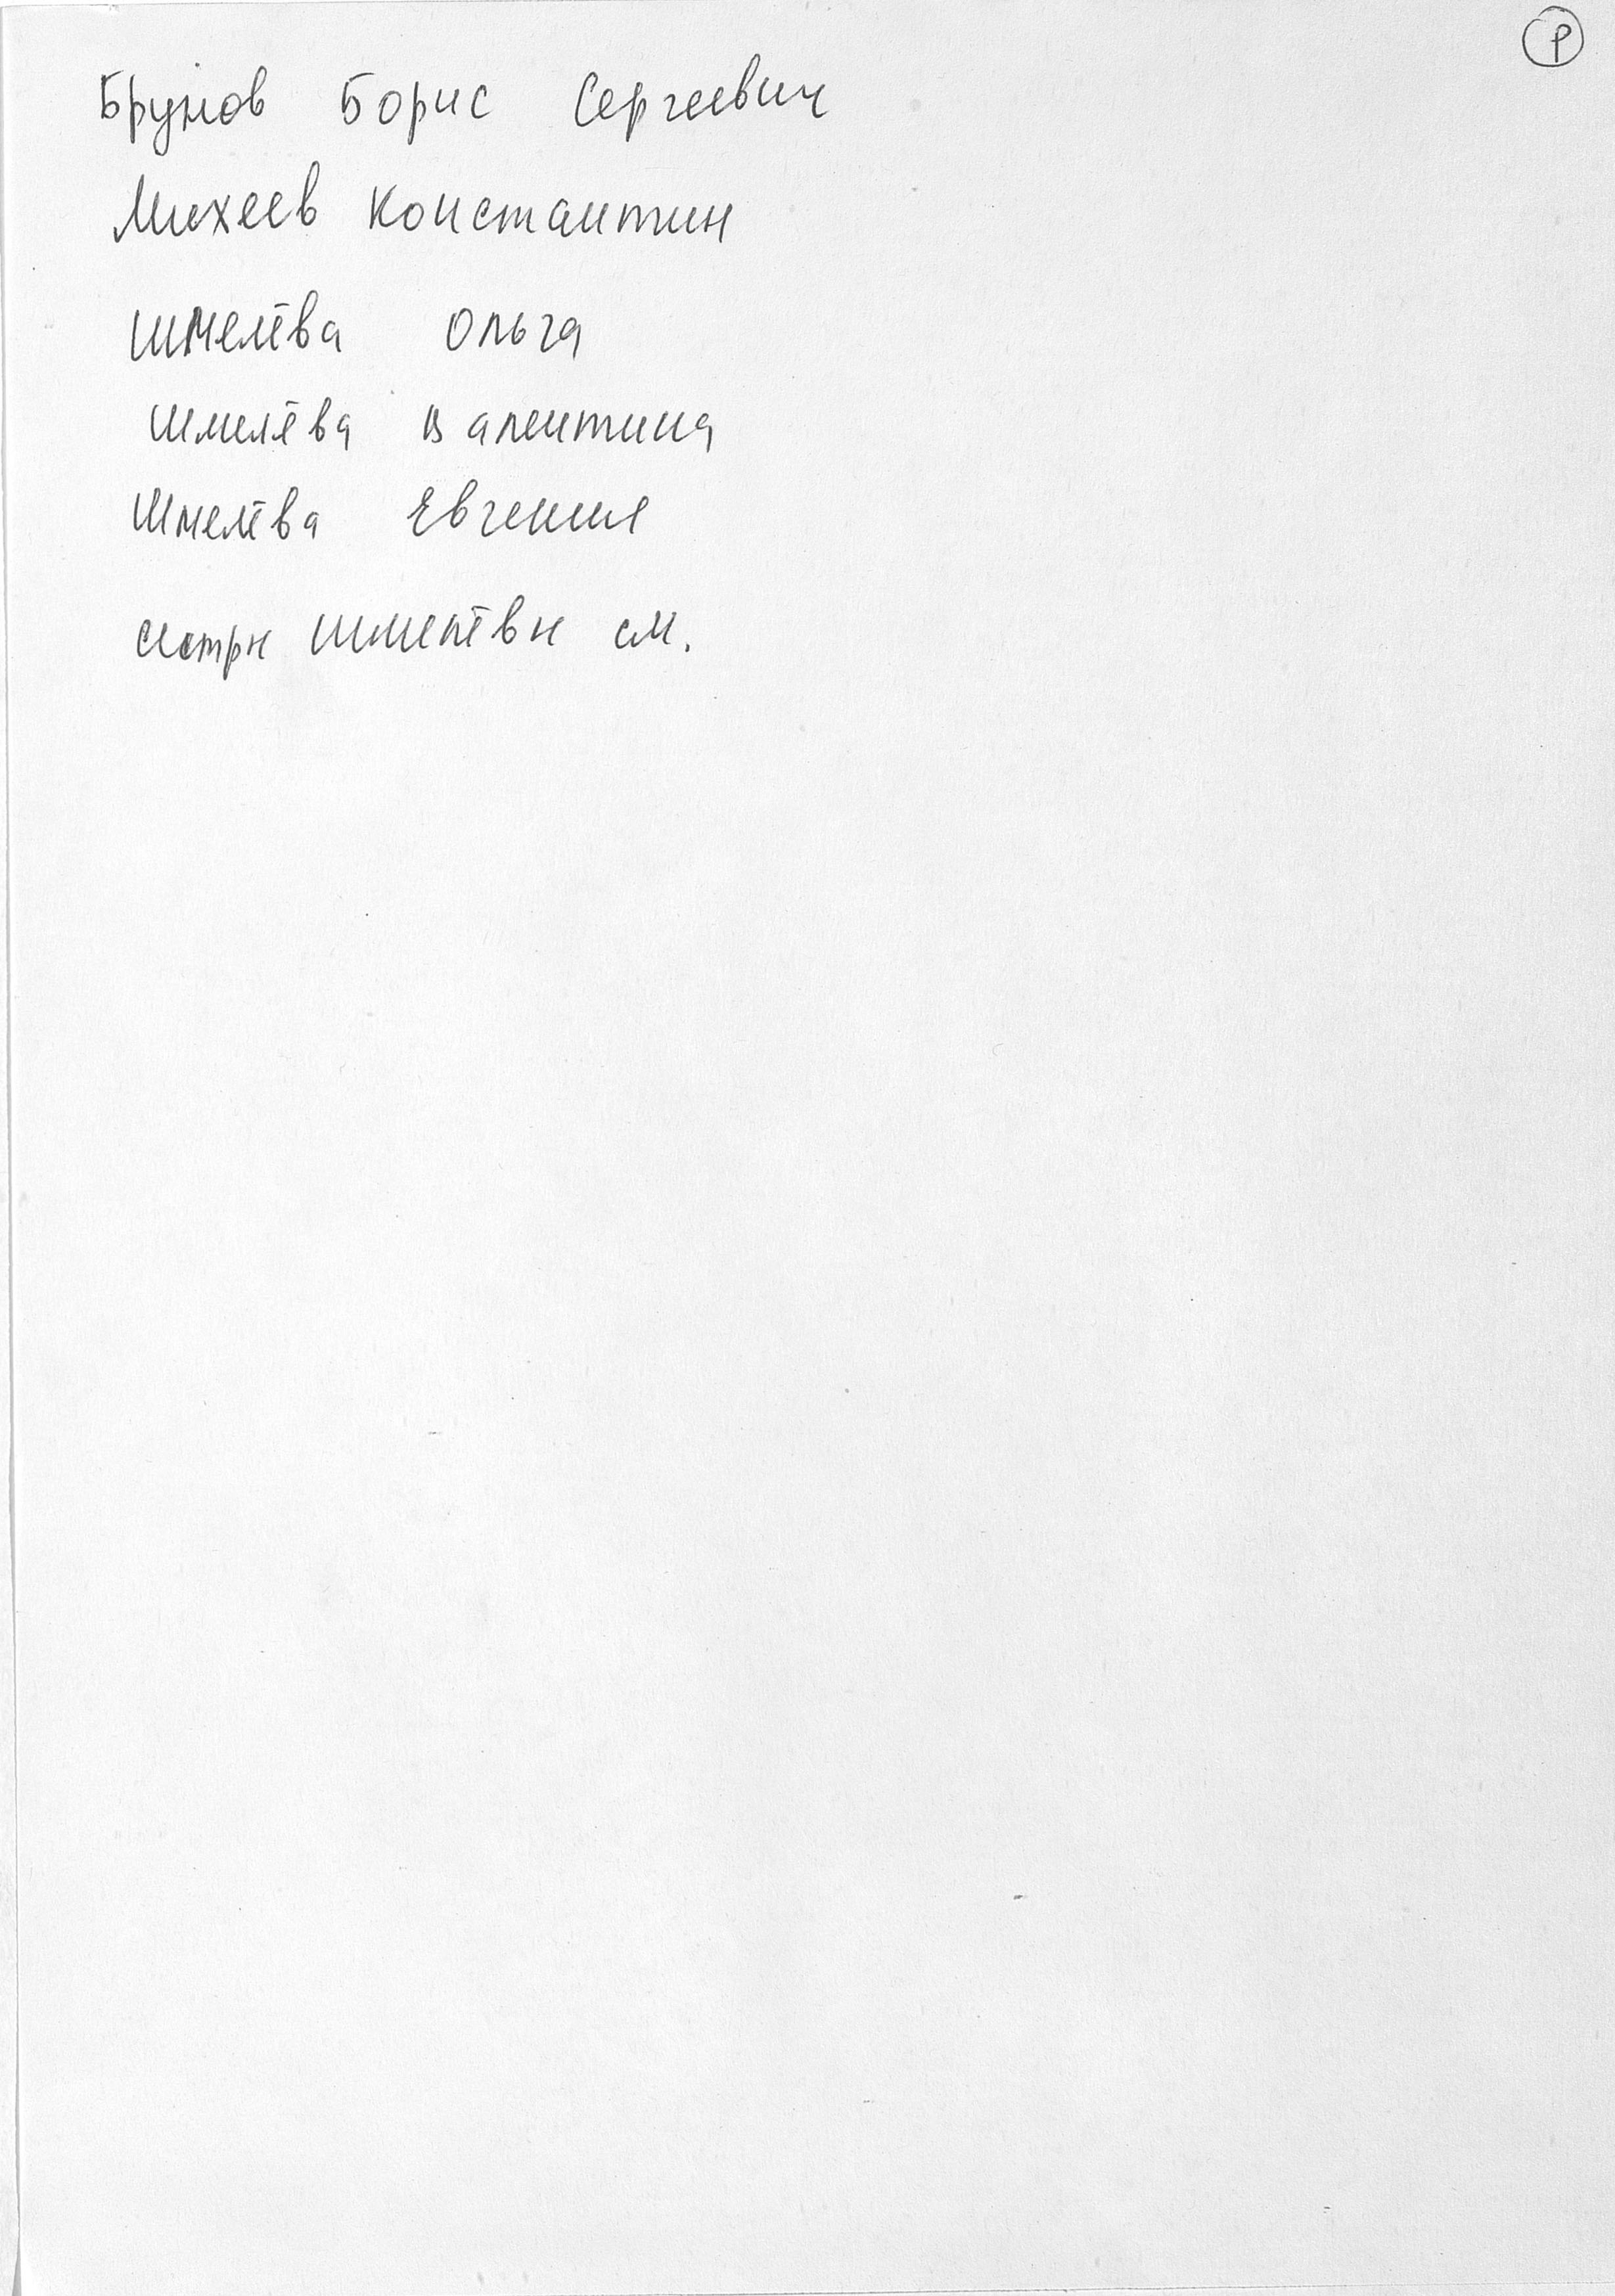 Ⓟ
Брунов Борис Сергеевич
Михеев Константин
Шмелёва Ольга
Шмелёва Валентина
Шмелёва Евгения
сестры Шмелёвы см.